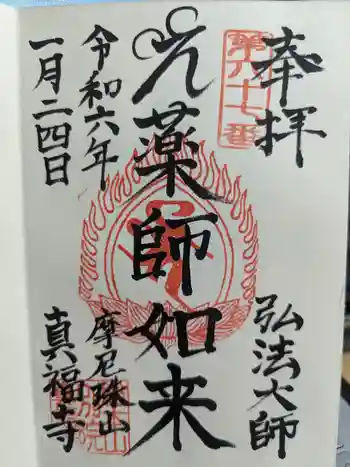 奉拝
弘法大師
第六十七番
薬師如来
令和六年
一月二四日
摩尼珠山
真福寺